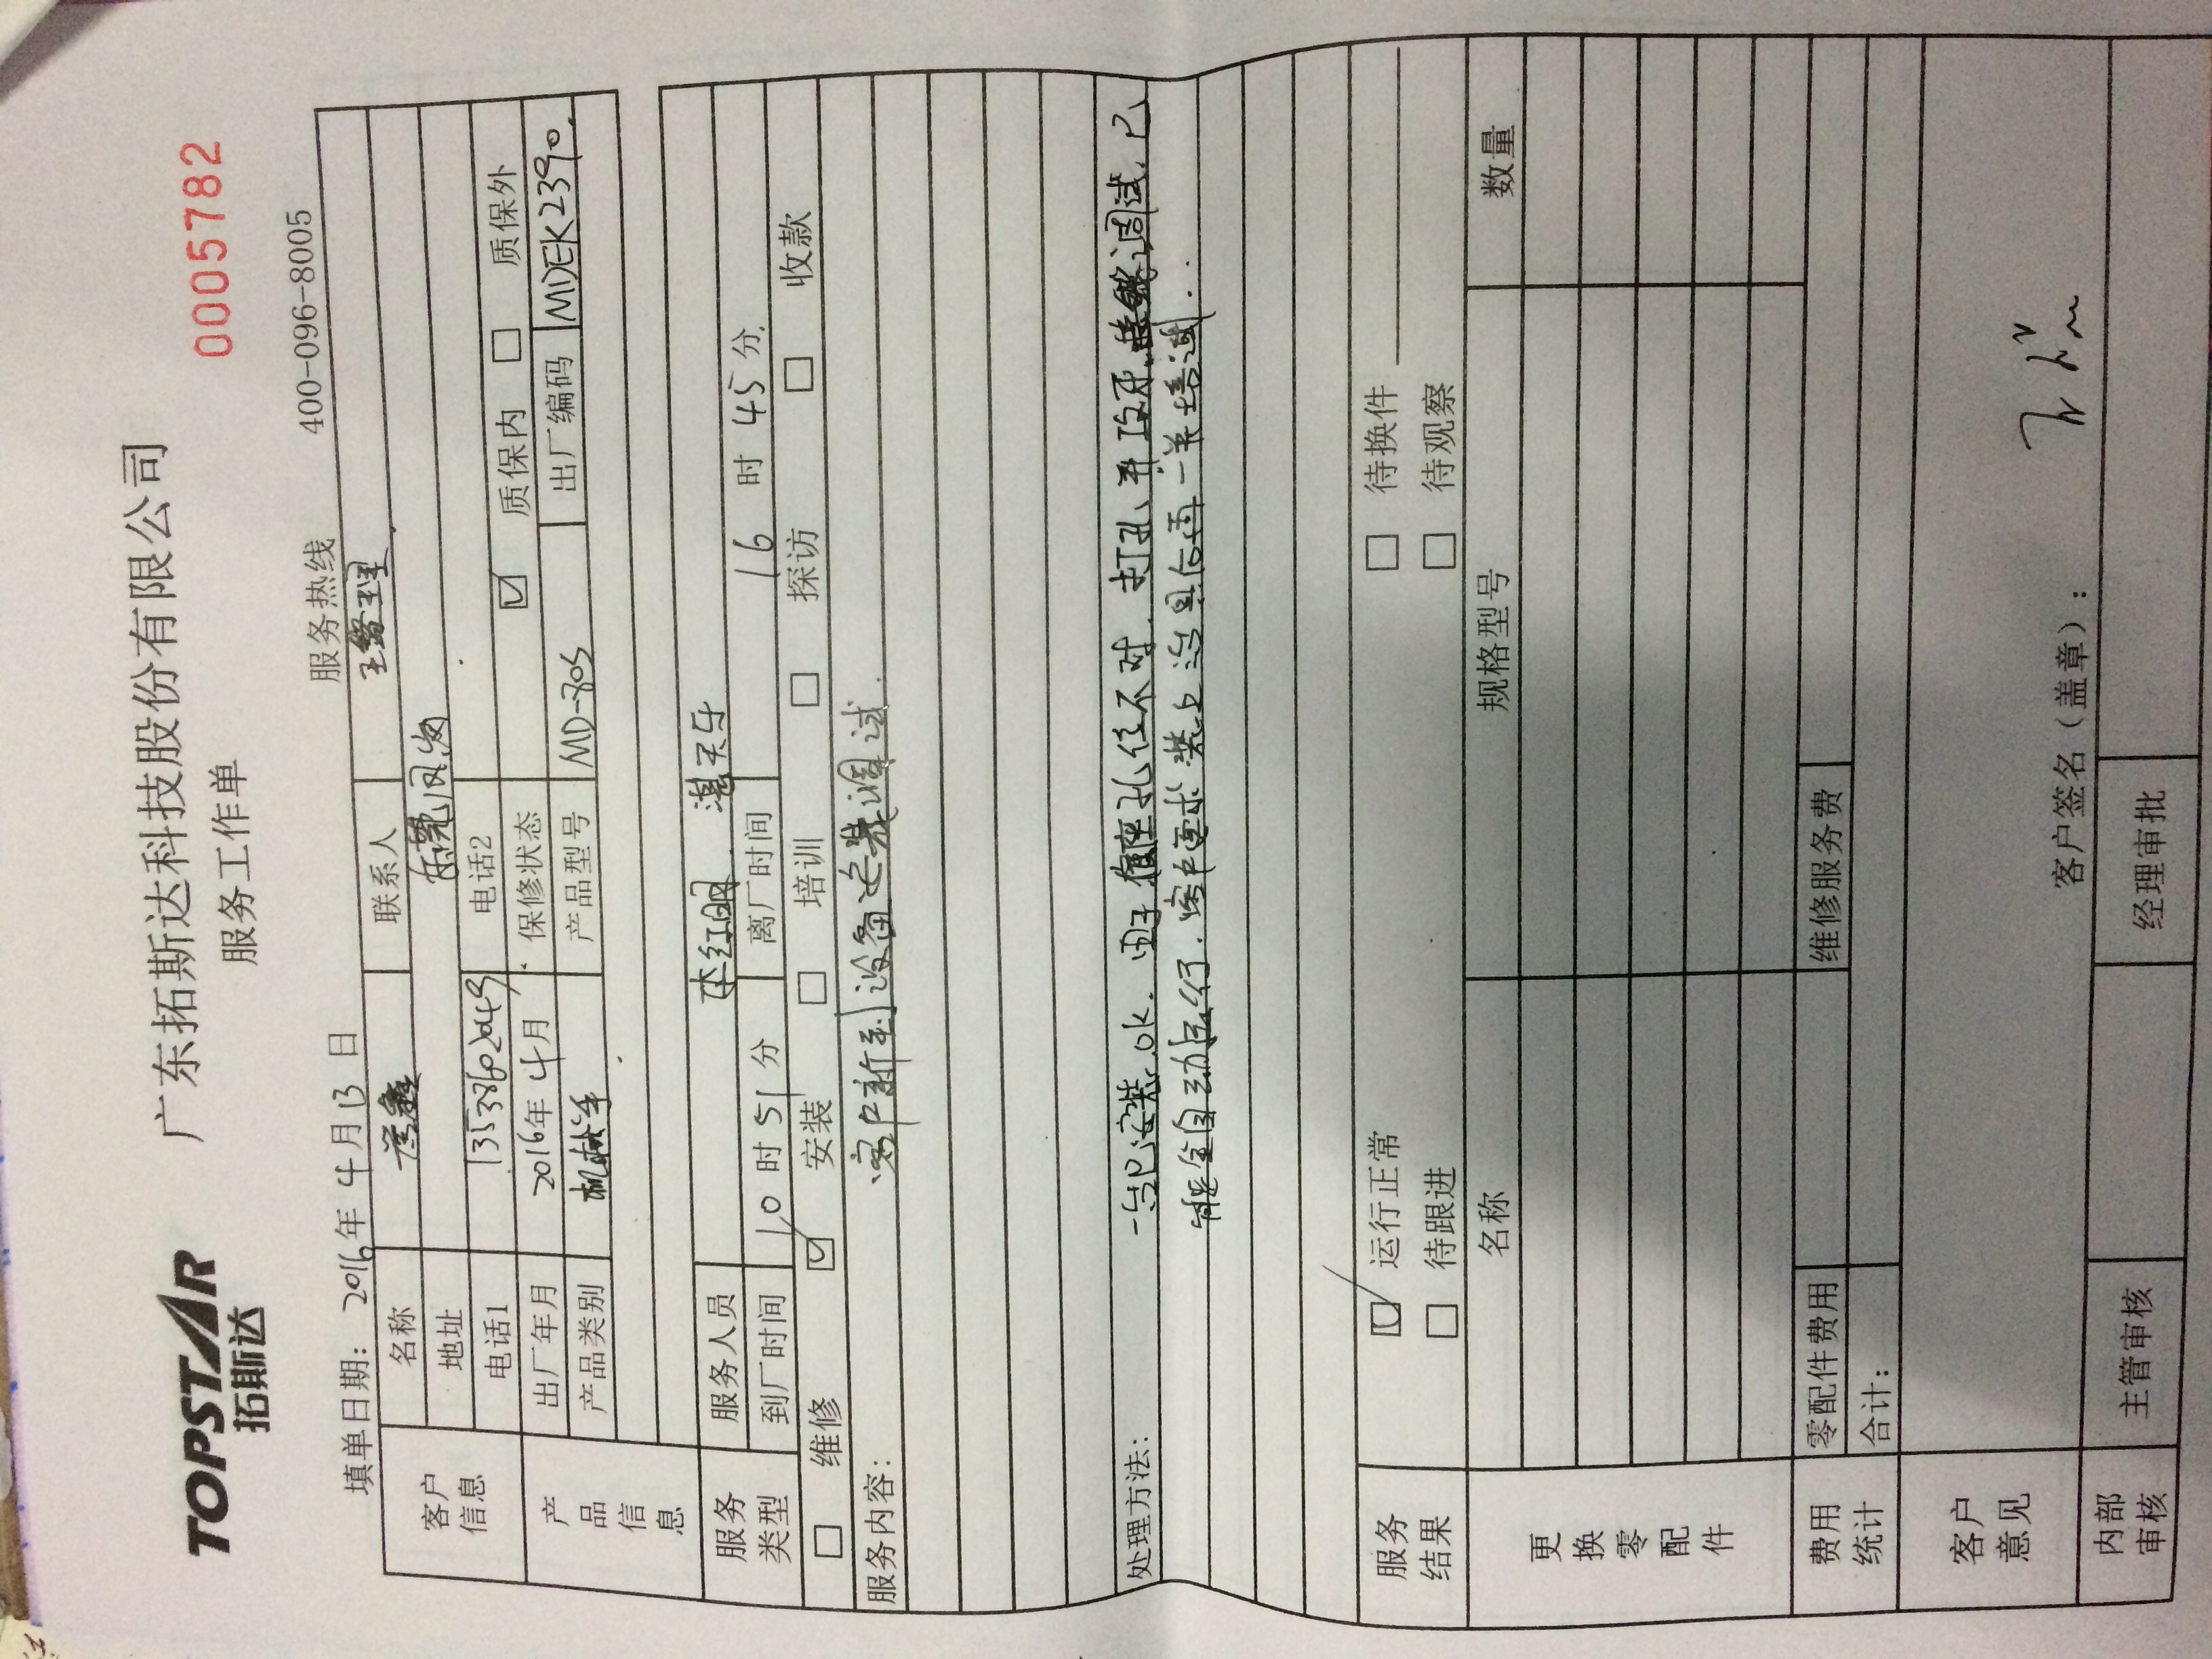 TOPSTAR
拓斯达
广东拓斯达科技股份有限公司
0005782
服务工作单
服务热线 400-096-8005
填单日期: 2016年4月13日
客户信息 名称 联系人 王经理
地址 东莞凤岗
电话1 13538602049 电话2
产品信息 出厂年月 2016年4月 保修状态 ☑ 质保内 □ 质保外
产品类别 机械手 产品型号 MD-70S 出厂编码 MDEK2390
服务类型 服务人员 李红明
到厂时间 10时51分 离厂时间 16时45分
□ 维修 ☑ 安装 □ 培训 □ 探访 □ 收款
服务内容: 客户新到设备安装调试.
处理方法: 一台已安装ok. 由于底座孔位不对, 打孔并攻牙, 调试, 已
能全自动运行. 客户要求装上治具后再一并培训.
服务结果 ☑ 运行正常 □ 待换件
□ 待跟进 □ 待观察
更换零配件 名称 规格型号 数量
费用统计 零配件费用 维修服务费
合计:
客户意见
客户签名(盖章):
内部审核 主管审核 经理审批